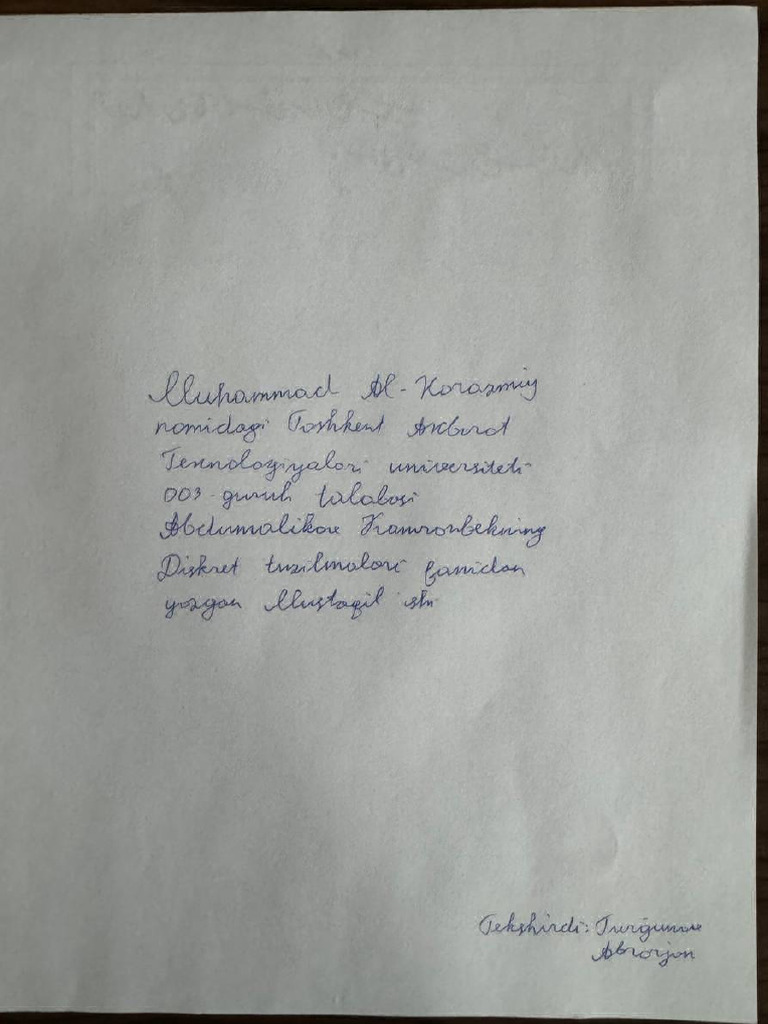 Muhammad Al-Xorazmiy
nomidagi Toshkent Axborot
Texnologiyalari universiteti
003-guruh talabasi
Abdumalikov Kamronbekning
Diskret tuzilmalari fanidan
yozgan Mustaqil ishi
Tekshirdi: Turgunov
Abrorjon